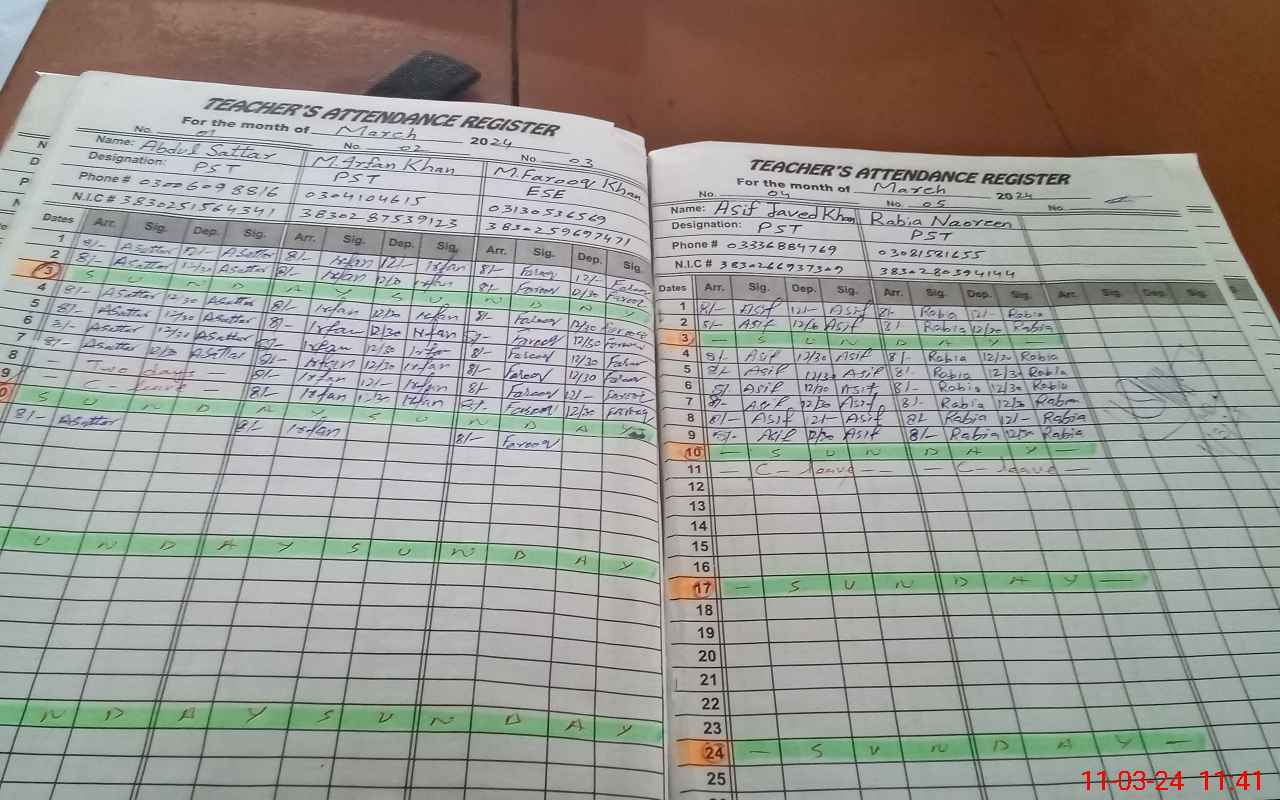 TEACHER'S ATTENDANCE REGISTER
For the month of March 2024
No. 01 No. 02 No. 03
Name: Abdul Sattar M. Irfan Khan M. Farooq Khan
Designation: PST PST ESE
Phone # 03006098816 03041104615 03130536569
N.I.C # 3830251564341 3830287539123 3830259697471
Dates Arr. Sig. Dep. Sig. Arr. Sig. Dep. Sig. Arr. Sig. Dep. Sig.
1 8/- Asattar 12/- Asattar 8/- Irfan 12/- Irfan 8/- Farooq 12/- Farooq
2 8/- Asattar 12/30 Asattar 8/- Irfan 12/30 Irfan 8/- Farooq 12/30 Farooq
3 S U N D A Y S U N D A Y
4 8/- Asattar 12/30 Asattar 8/- Irfan 12/30 Irfan 8/- Farooq 12/30 Farooq
5 8/- Asattar 12/30 Asattar 8/- Irfan 12/30 Irfan 8/- Farooq 12/30 Farooq
6 8/- Asattar 12/30 Asattar 8/- Irfan 12/30 Irfan 8/- Farooq 12/30 Farooq
7 8/- Asattar 12/30 Asattar 8/- Irfan 12/30 Irfan 8/- Farooq 12/30 Farooq
8 - Two days - 8/- Irfan 12/- Irfan 8/- Farooq 12/- Farooq
9 - C - leave - 8/- Irfan 12/30 Irfan 8/- Farooq 12/30 Farooq
0 S U N D A Y S U N D A Y
8/- Asattar 8/- Irfan 8/- Farooq
U N D A Y S U N D A Y
N D A Y S U N D A Y
TEACHER'S ATTENDANCE REGISTER
For the month of March 2024
No. 04 No. 05 No.
Name: Asif Javed Khan Rabia Naoreen
Designation: PST PST
Phone # 03336884769 03081581655
N.I.C # 3830266937309 3830280394144
Dates Arr. Sig. Dep. Sig. Arr. Sig. Dep. Sig. Arr. Sig. Dep. Sig.
1 8/- Asif 12/- Asif 8/- Rabia 12/- Rabia
2 8/- Asif 12/30 Asif 8/- Rabia 12/30 Rabia
3 - S U N D A Y -
4 8/- Asif 12/30 Asif 8/- Rabia 12/30 Rabia
5 8/- Asif 12/30 Asif 8/- Rabia 12/30 Rabia
6 8/- Asif 12/30 Asif 8/- Rabia 12/30 Rabia
7 8/- Asif 12/30 Asif 8/- Rabia 12/30 Rabia
8 8/- Asif 12/- Asif 8/- Rabia 12/- Rabia
9 8/- Asif 12/30 Asif 8/- Rabia 12/30 Rabia
10 - S U N D A Y -
11 - C - leave - - - C - leave -
12
13
14
15
16
17 - S U N D A Y -
18
19
20
21
22
23
24 - S U N D A Y -
25
11-03-24 11:41